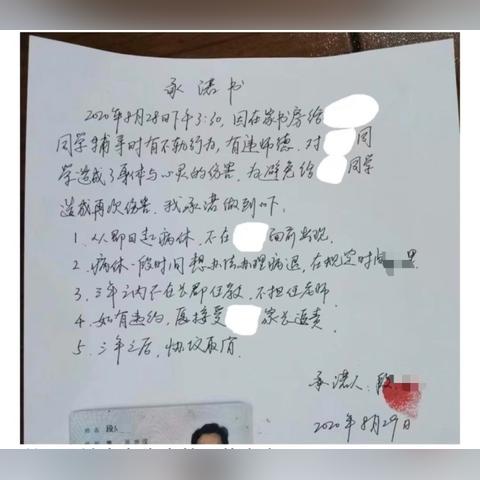 承诺书
2020年8月28日下午3:30,因在家书房给
同学辅导时有不轨行为,有违师德.对 同
学造成了身体与心灵的伤害.为避免给 同学
造成再次伤害.我承诺做到如下:
1、从即日起病休,不在 面前出现.
2、病休一段时间想办法办理病退,在规定时间 里
3、三年之内不在 任教,不担任老师.
4、如有违约,愿接受 家长追责.
5、三年之后,协议取消.
承诺人:段
2020年8月29日
姓名 段